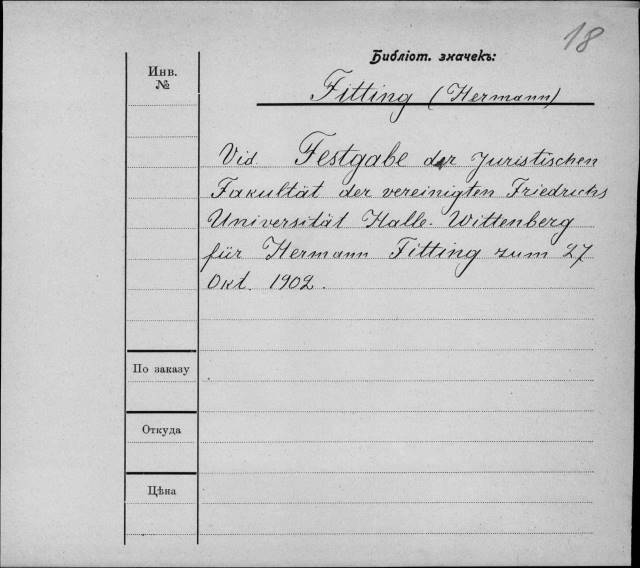 18
Библіот. значекъ:
Инв.
№
Fitting (Hermann)
Vid. Festgabe der Juristischen
Fakultät der vereinigten Friedrichs
Universität Halle-Wittenberg
für Hermann Fitting zum 27
Okt. 1902.
По заказу
Откуда
Цѣна